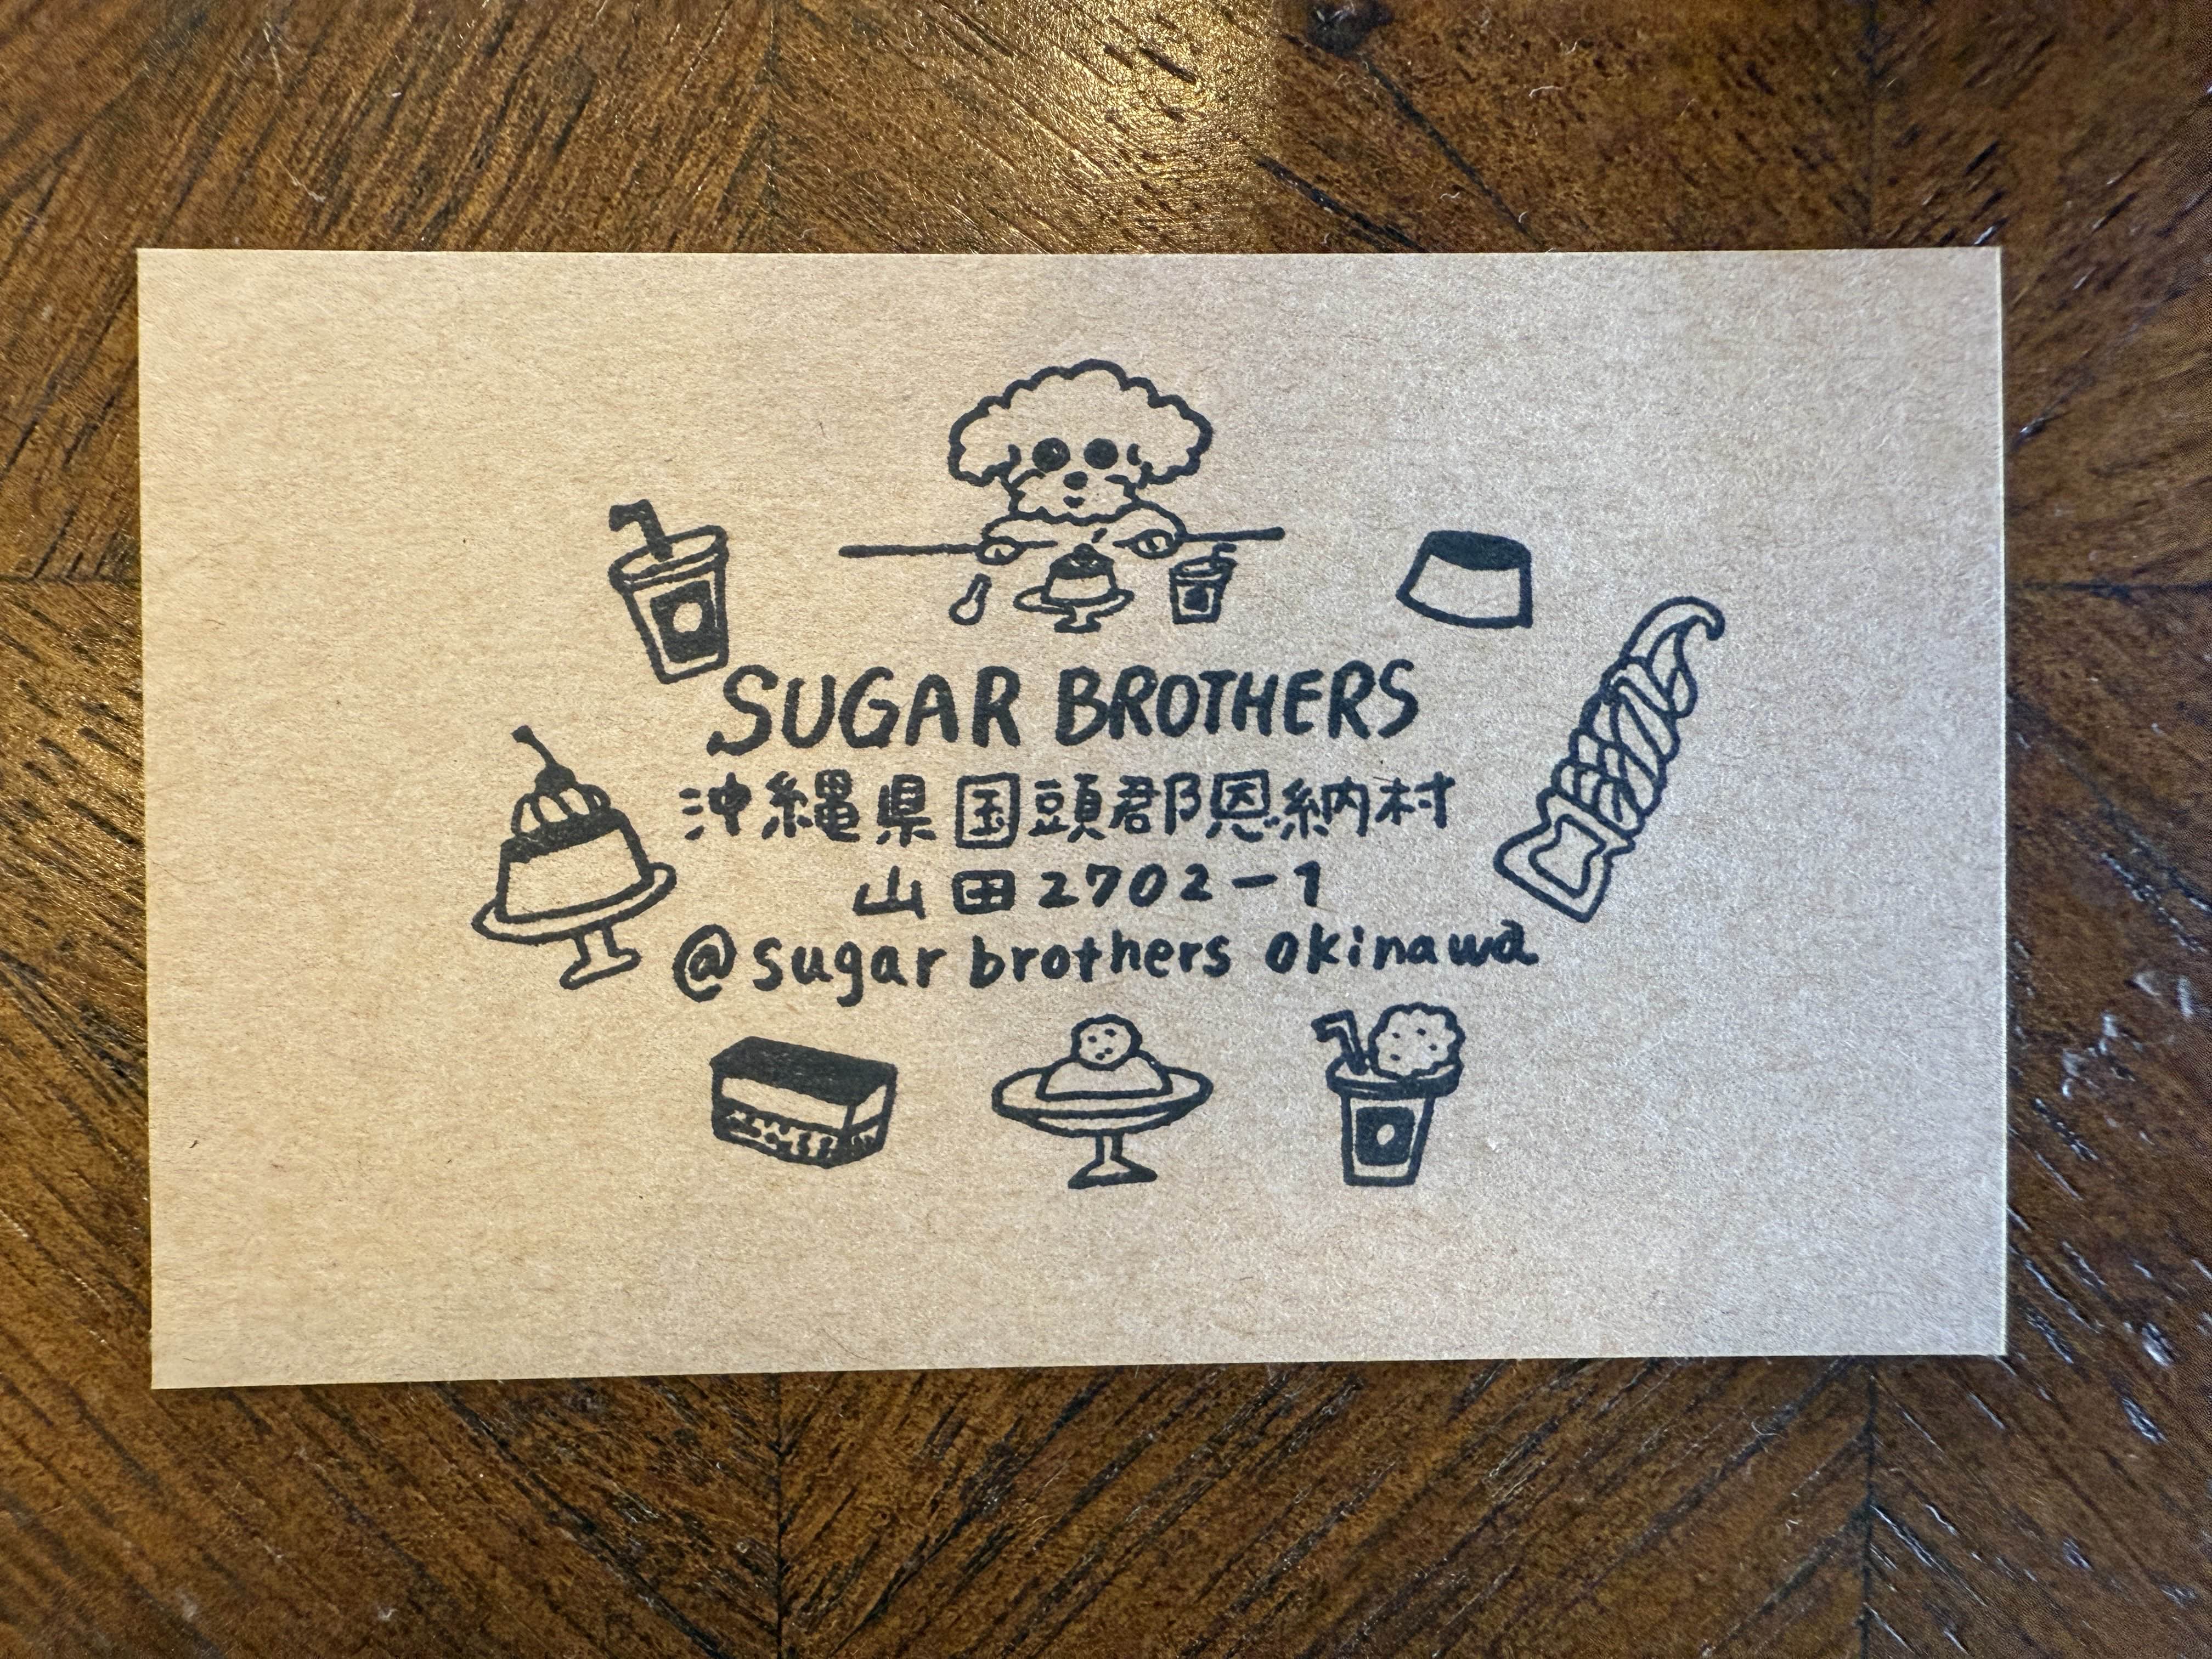 SUGAR BROTHERS
沖縄県国頭郡恩納村
山田2702-1
@sugar brothers okinawa